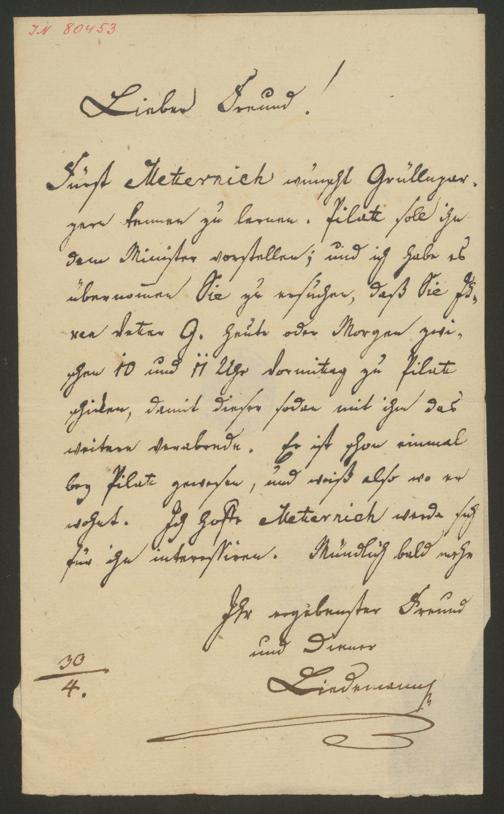 IN 80453
Lieber Freund!
Fürst Metternich wünscht Grüllnpar-
zern kennen zu lernen. Pilati soll ihn
dem Minister vorstellen; und ich habe es
übernommen Sie zu ersuchen, daß Sie Ih-
ren Vetter G. heute oder Morgen zwi-
schen 10 und 11 Uhr Vormittag zu Pilati
schicken, damit dieser sodan mit ihm das
weitere verabrede. Er ist schon einmal
bey Pilati gewesen, und weiß also wo er
wohnt. Ich hoffe Metternich werde sich
für ihn interessiren. Mündlich bald mehr
Ihr ergebenster Freund
und Diener
30/4.
Liedemann